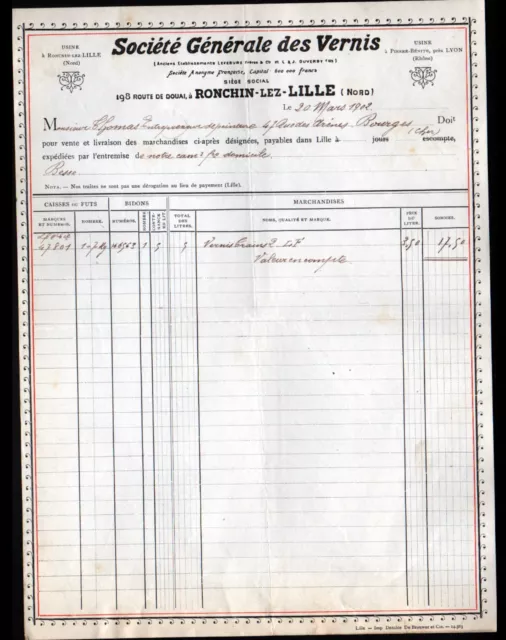 USINE
à RONCHIN-LEZ-LILLE
(Nord)
Société Générale des Vernis
USINE
à PIERRE-BÉNITE, près LYON
(Rhône)
(Anciens Établissements LEFEBURE Frères & Cie
Société Anonyme Française, Capital 600 000 francs
SIÈGE SOCIAL
198 ROUTE DE DOUAI, à RONCHIN-LEZ-LILLE (NORD)
Le 20 Mars 1902
Monsieur Thomas Entrepreneur de peinture 47 Rue des Arènes Bourges Doit
(Cher)
pour vente et livraison des marchandises ci-après désignées, payables dans Lille à jours escompte,
expédiées par l'entremise de notre cam fco domicile
Besse
NOTA. — Nos traites ne sont pas une dérogation au lieu de payement (Lille).
CAISSES OU FUTS BIDONS MARCHANDISES
MARQUES ET NUMÉROS. NOMBRE. NUMÉROS. NOMBRE TOTAL DES LITRES. NOMS, QUALITÉ ET MARQUE. PRIX DU LITRE. SOMMES.
47801 1 5 5 Vernis 2 LF 3,50 17,50
Valeur en compte